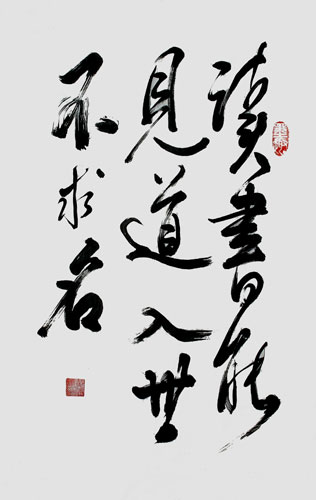 讀書能
見道入世
不求名